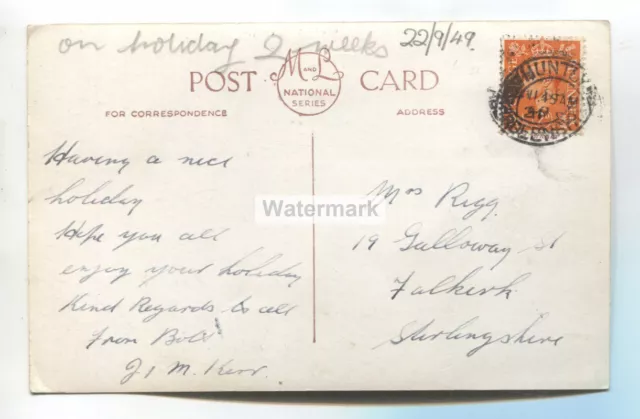 on holiday 2 weeks
22/9/49
POST CARD
M AND L
NATIONAL
SERIES
FOR CORRESPONDENCE
ADDRESS
Having a nice
holiday
Hope you all
enjoy your holiday
Kind Regards to all
From Bob
J. M. Kerr.
Mrs Rigg
19 Galloway St
Falkirk
Stirlingshire
Watermark